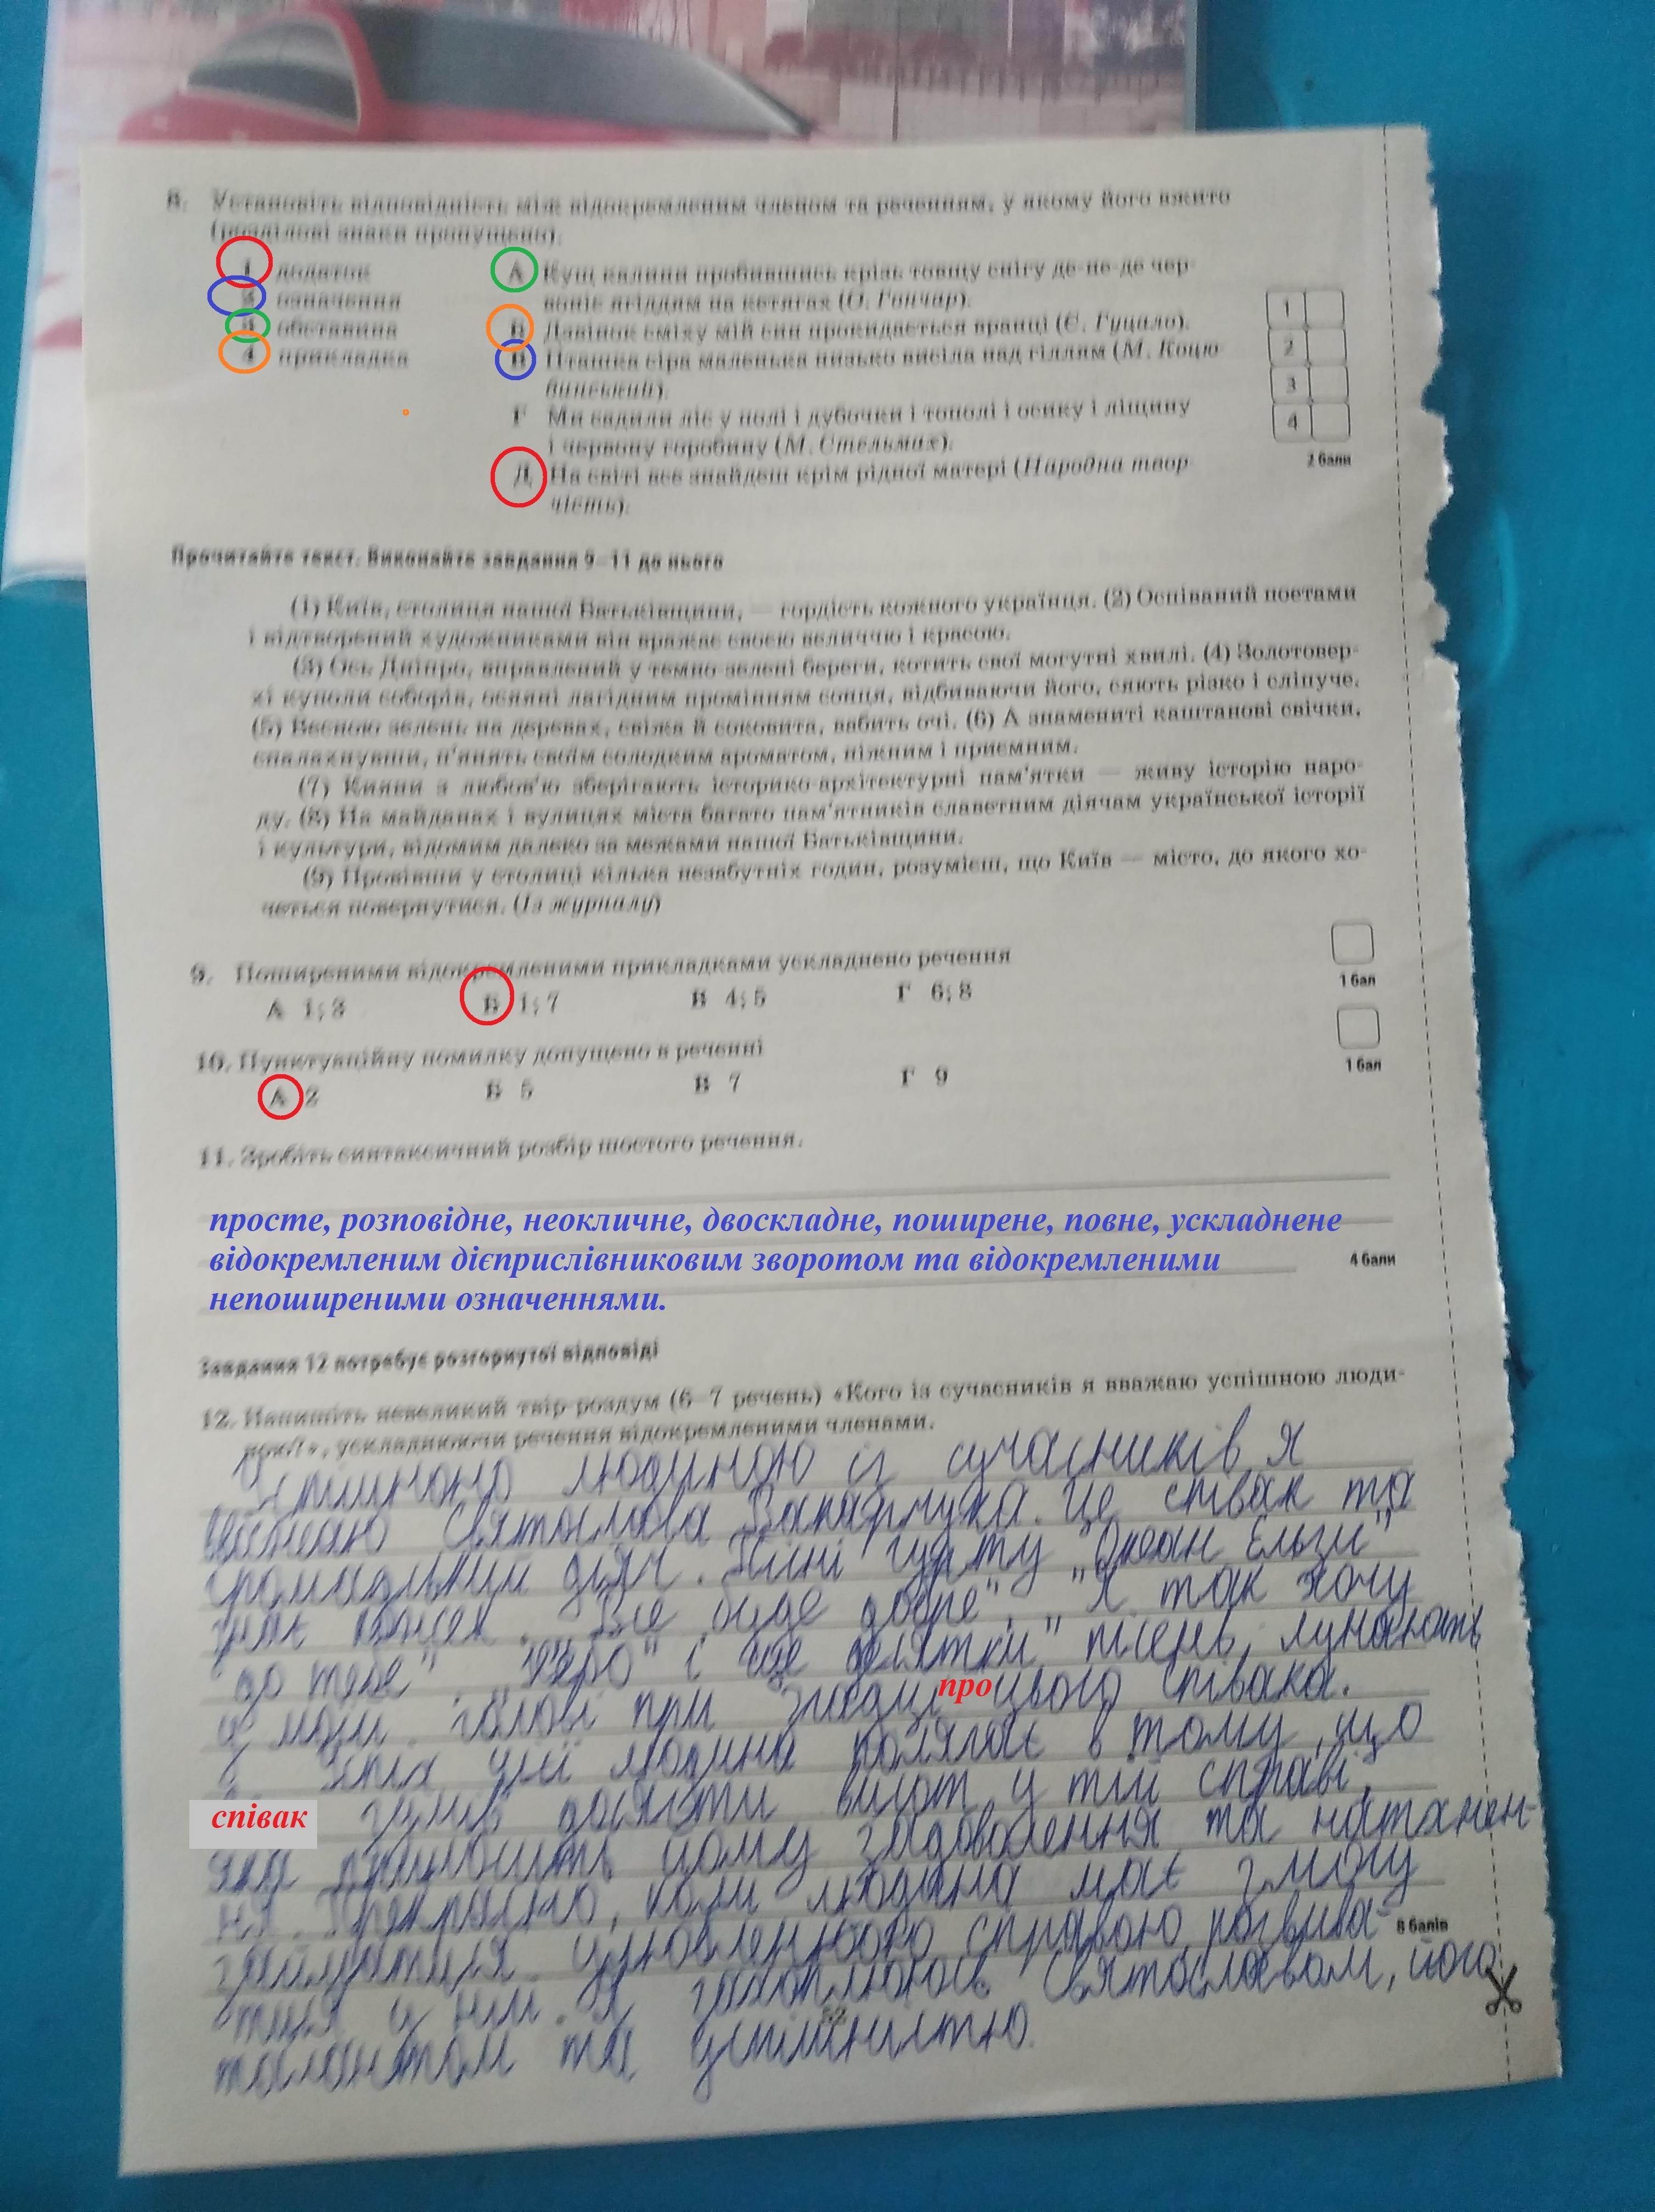 8. Установіть відповідність між відокремленим членом та реченням, у якому його вжито
(розділові знаки пропущено).
1 додаток
2 означення
3 обставина
4 прикладка
А Кущ калини пробившись крізь товщу снігу де-не-де чер-
вонів ягіддям на кетягах (О. Гончар).
Б Дзвінок сміху мій син прокидається вранці (Є. Гуцало).
В Пташка сіра маленька низько висіла над гіллям (М. Коцю-
бинський).
Г Ми садили ліс у полі і дубочки і тополі і осику і ліщину
і червону горобину (М. Стельмах).
Д На світі все знайдеш крім рідної матері (Народна твор-
чість).
1
2
3
4
2 бали
Прочитайте текст. Виконайте завдання 9–11 до нього
(1) Київ, столиця нашої Батьківщини, — гордість кожного українця. (2) Оспіваний поетами
і відтворений художниками він вражає своєю величчю і красою.
(3) Ось Дніпро, вправлений у темно-зелені береги, котить свої могутні хвилі. (4) Золотовер-
хі куполи соборів, осяяні лагідним промінням сонця, відбиваючи його, сяють різко і сліпуче.
(5) Весною зелень на деревах, свіжа й соковита, вабить очі. (6) А знамениті каштанові свічки,
спалахнувши, п'янять своїм солодким ароматом, ніжним і приємним.
(7) Кияни з любов'ю зберігають історико-архітектурні пам'ятки — живу історію наро-
ду. (8) На майданах і вулицях міста багато пам'ятників славетним діячам української історії
і культури, відомим далеко за межами нашої Батьківщини.
(9) Провівши у столиці кілька незабутніх годин, розумієш, що Київ — місто, до якого хо-
четься повернутися. (Із журналу)
9. Поширеними відокремленими прикладками ускладнено речення
А 1; 3 Б 1; 7 В 4; 5 Г 6; 8
1 бал
10. Пунктуаційну помилку допущено в реченні
А 2 Б 5 В 7 Г 9
1 бал
11. Зробіть синтаксичний розбір шостого речення.
просте, розповідне, неокличне, двоскладне, поширене, повне, ускладнене
відокремленим дієприслівниковим зворотом та відокремленими
непоширеними означеннями.
4 бали
Завдання 12 потребує розгорнутої відповіді
12. Напишіть невеликий твір-роздум (6–7 речень) «Кого із сучасників я вважаю успішною люди-
ною?», ускладнюючи речення відокремленими членами.
Успішною людиною із сучасників я
вважаю Святослава Вакарчука. Це співак та
громадський діяч. Пісні гурту "Океан Ельзи"
знає кожен. "Все буде добре", "Я так хочу
до тебе", і ще десятки пісень, лунають
в моїй голові при згадці про цього співака.
Успіх цієї людини полягає в тому, що
співак зумів досягти висот у тій справі,
яка приносить йому задоволення та натхнен-
ня. Прекрасно, коли людина має змогу
займатися улюбленою справою розвива-
тися у ній. Я захоплююсь Святославом, його
талантом та успішністю.
8 балів
52